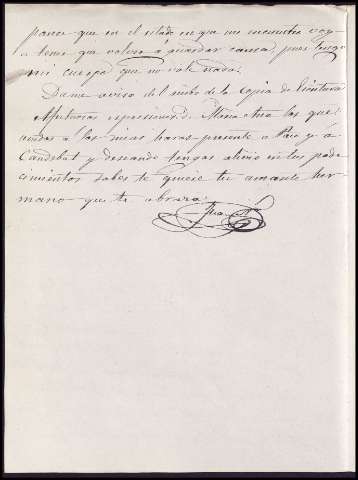 parece que en el estado en que me encuentro voy
a tener que volver a guardar cama, pues tengo
mi cuerpo que no vale nada.
Dame aviso del recibo de la copia de
Afectuosas espresiones á María Ana las que
unidas a las mias haras presente a Paco y á
Candebat y deseando tengas alivio en tus pade
cimientos sabes te quiere tu amante her
mano que te abraza